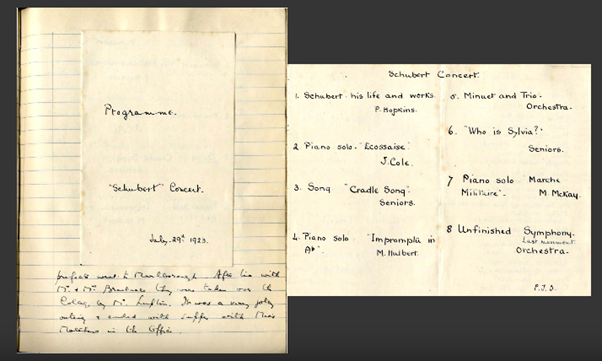 Programme.
"Schubert" Concert.
July. 29th 1923.
prefects went to Marlborough. After tea with
Mr & Mrs they were taken over the
by Mr. It was a very jolly
outing & ended with supper with Miss
in the Office
Schubert Concert.
1. Schubert. his life and works.
P. Hopkins.
2 Piano solo. "Ecossaise".
J. Cole.
3. Song "Cradle Song".
Seniors.
4. Piano solo "Impromptu in
A♭".
M. Hulbert.
5. Minuet and Trio.
Orchestra.
6. "Who is Sylvia?"
Seniors.
7 Piano solo Marche
Militaire".
M. McKay.
8 Unfinished Symphony.
Last movement
Orchestra.
P.J.S.